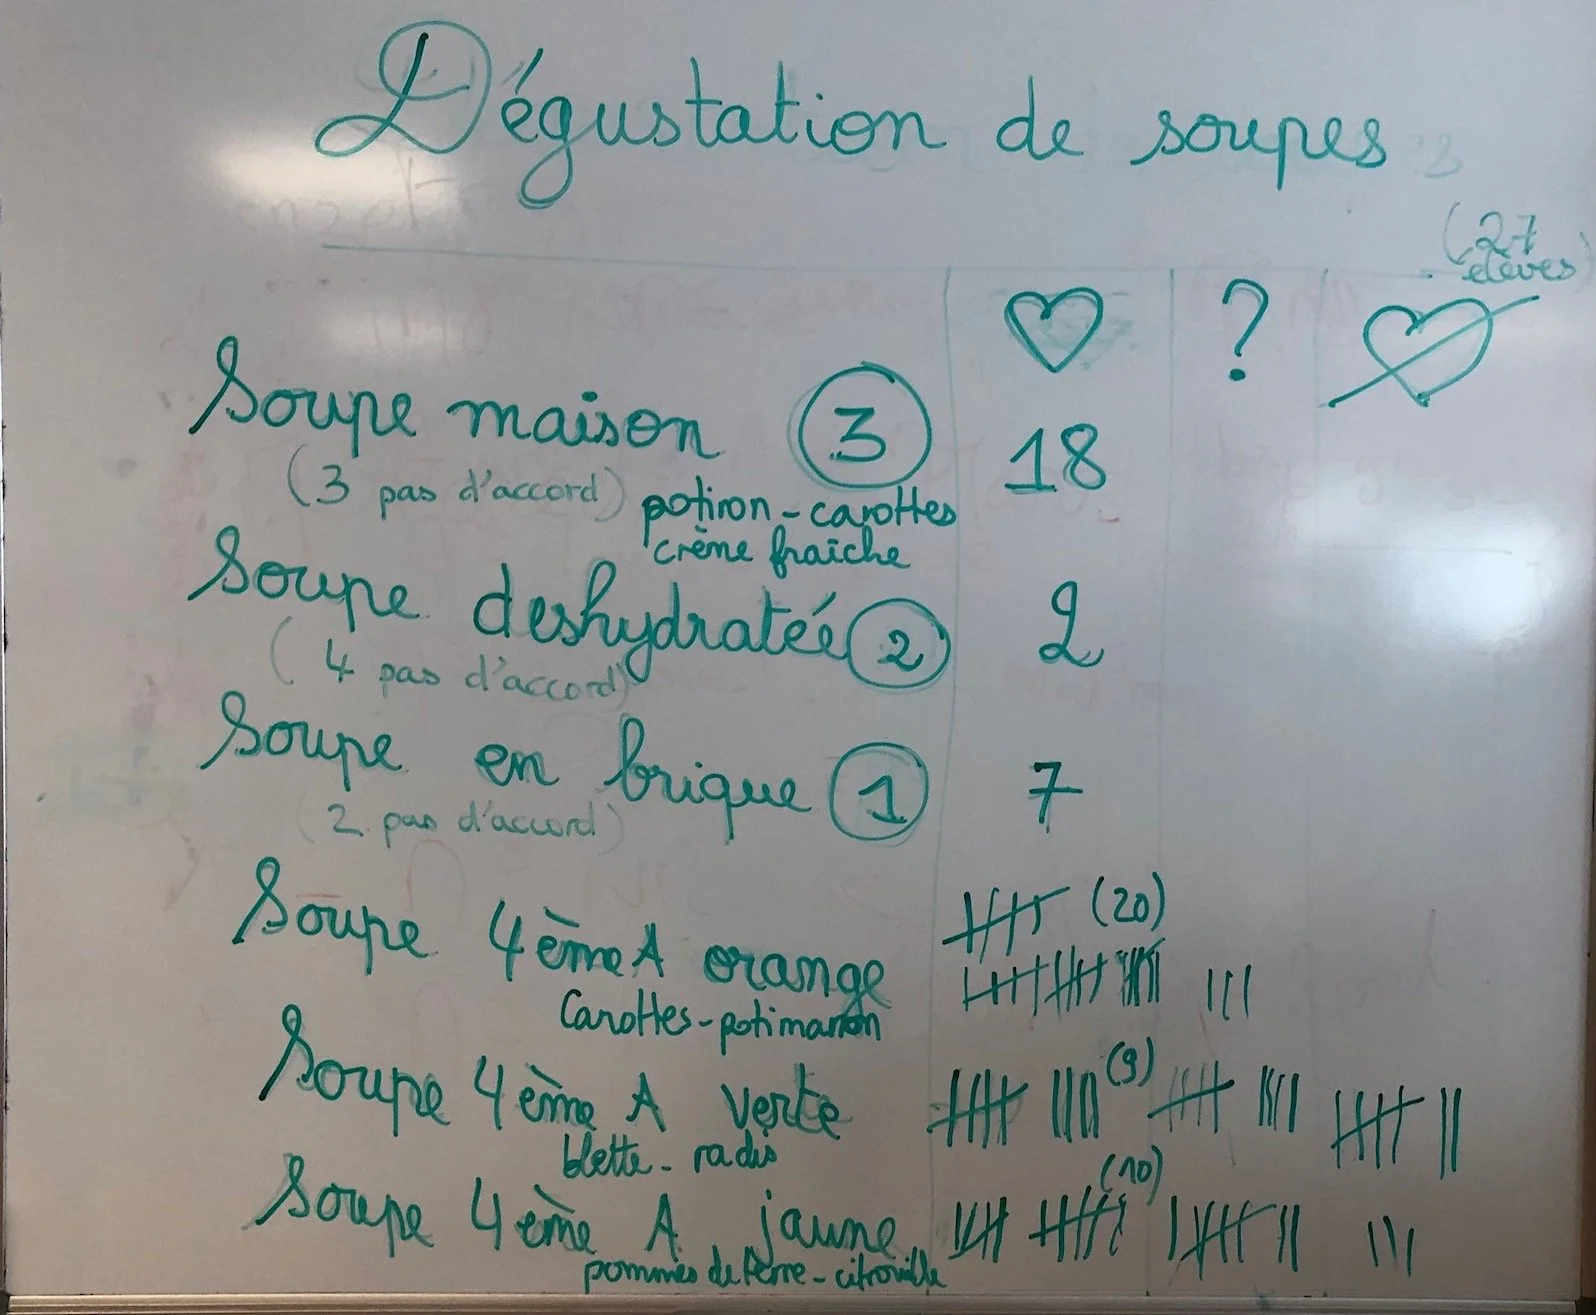 Dégustation de soupes
(27
élèves)
♡ ?
Soupe maison 3 18
(3 pas d'accord) potiron - carottes
crème fraîche
Soupe deshydratéé 2 2
(4 pas d'accord)
Soupe en brique 1 7
(2 pas d'accord)
Soupe 4ème A orange (20)
Carottes - potimarron
Soupe 4ème A verte (9)
blette - radis
Soupe 4ème A jaune (10)
pommes de terre - citrouille